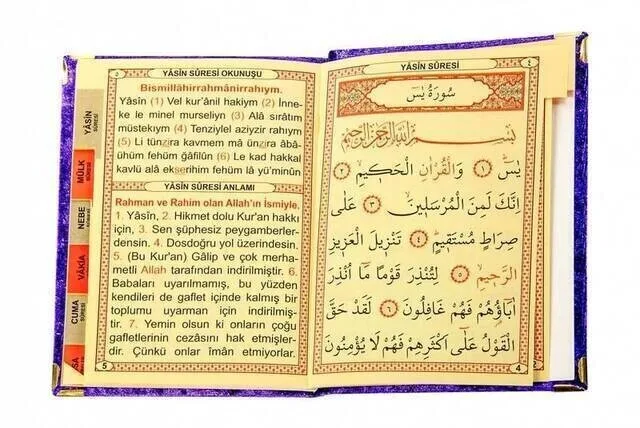 ٥ YÂSİN SÛRESİ OKUNUŞU
Bismillâhirrahmânirrahıym.
Yâsîn (1) Vel kur'ânil hakiym (2) İnne-
ke le minel murseliyn (3) Alâ sırâtım
müstekıym (4) Tenziylel aziyzir rahıym
(5) Li tünzira kavmem mâ ünzira âbâ-
ühüm fehüm ğâfilûn (6) Le kad hakkal
kavlü alâ ekserihim fehüm lâ yü'minûn
YÂSİN SÛRESİ ANLAMI
Rahman ve Rahim olan Allah'ın İsmiyle.
1. Yâsîn, 2. Hikmet dolu Kur'an hakkı
için, 3. Sen şüphesiz peygamberler-
densin. 4. Dosdoğru yol üzerindesin.
5. (Bu Kur'an) Gâlip ve çok merha-
metli Allah tarafından indirilmiştir. 6.
Babaları uyarılmamış, bu yüzden
kendileri de gaflet içinde kalmış bir
toplumu uyarman için indirilmiş-
tir. 7. Yemin olsun ki onların çoğu
gafletlerinin cezasını hak etmişler-
dir. Çünkü onlar îmân etmiyorlar.
5
YÂSİN
SÛRESİ
MÜLK
SÛRESİ
NEBE
SÛRESİ
VÂKIA
SÛRESİ
CUMA
SÛRESİ
YÂSİN SÛRESİ ٤
سُورَةُ يٰسٓ
بِسْمِ اللّٰهِ الرَّحْمٰنِ الرَّحِيمِ
يٰسٓ ﴿١﴾ وَالْقُرْاٰنِ الْحَكِيمِ ﴿٢﴾
اِنَّكَ لَمِنَ الْمُرْسَلِينَ ﴿٣﴾ عَلٰى
صِرَاطٍ مُسْتَقِيمٍ ﴿٤﴾ تَنْزِيلَ الْعَزِيزِ
الرَّحِيمِ ﴿٥﴾ لِتُنْذِرَ قَوْمًا مَٓا اُنْذِرَ
اٰبَٓاؤُهُمْ فَهُمْ غَافِلُونَ ﴿٦﴾ لَقَدْ حَقَّ
الْقَوْلُ عَلٰٓى اَكْثَرِهِمْ فَهُمْ لَا يُؤْمِنُونَ
4
2